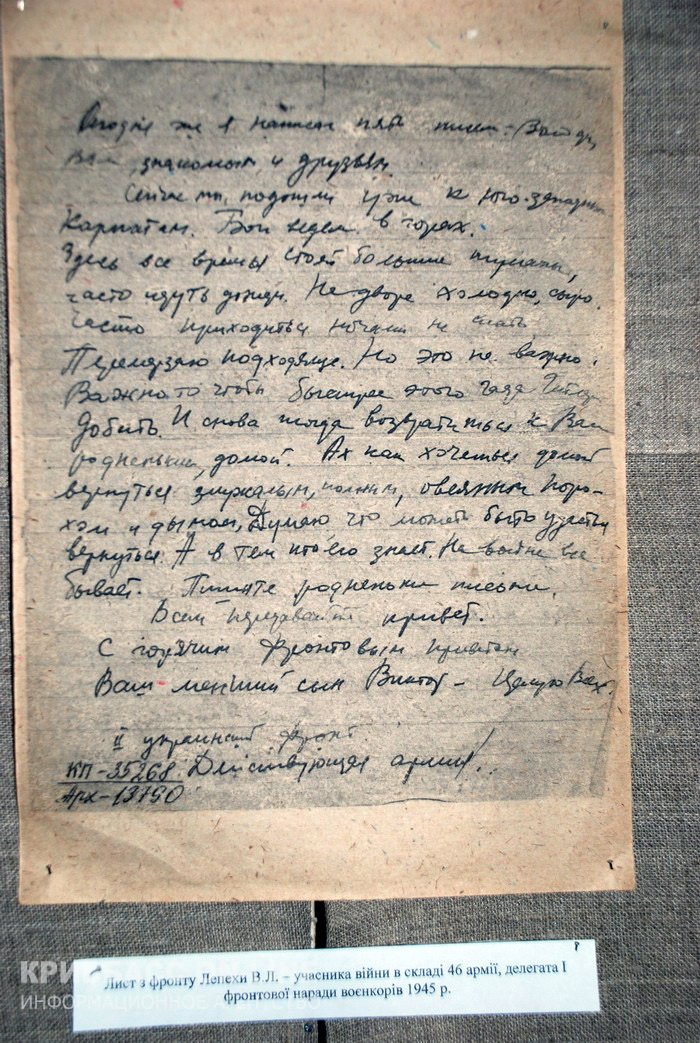 Сегодня же я написал пять писем: Вам
Вам, знакомым и друзьям.
Сейчас мы подошли уже к юго-западным
Карпатам. Бои ведем в горах.
Здесь все время стоят большие туманы,
часто идуть дожди. На дворе холодно, сыро.
Часто приходиться ночами не спать
Перемерзаю подходяще. Но это не важно.
Важно то чтобы быстрее этого гада
добить. И снова тогда возвратиться к Вам
родненьким, домой. Ах как хочеться домой
вернуться овеяным поро-
хом и дымом, Думаю что может быть удасться
вернуться. А в тем кто его знает. На войне все
бывает. Пишите родненьки письма.
Всем передавайте привет.
С горячим фронтовым приветом
Ваш менший сын Виктор – Целую Вас.
II украинский фронт.
КП-35268 Действующая армия!
Арх-13790
Лист з фронту Лепехи В.Л. – учасника війни в складі 46 армії, делегата І
фронтової наради воєнкорів 1945 р.
ИНФОРМАЦИОННОЕ